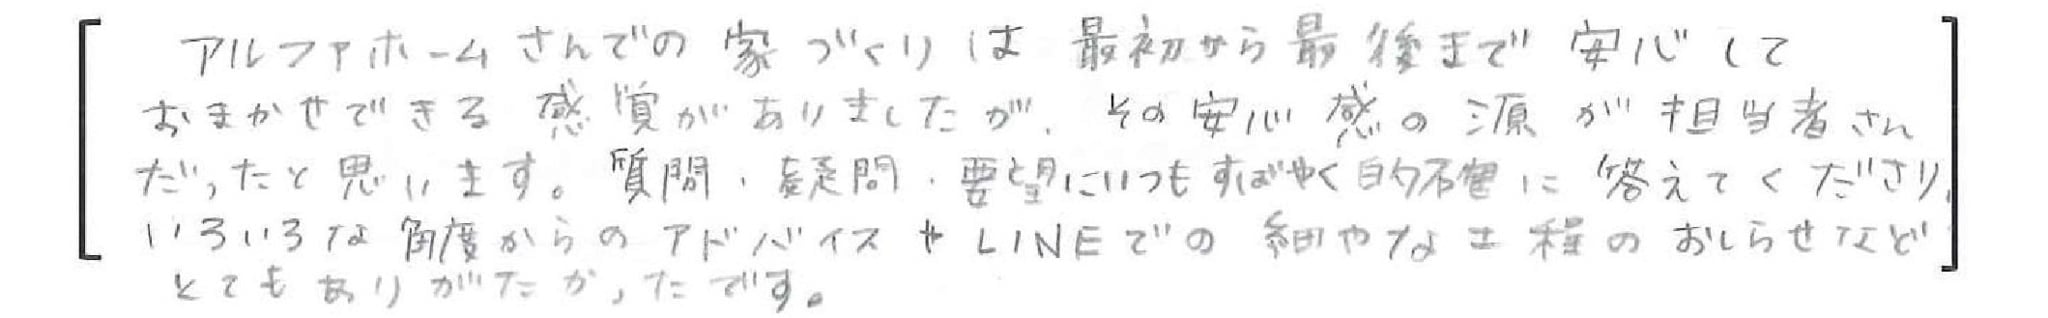 アルファホームさんでの家づくりは最初から最後まで安心して
おまかせできる感覚がありましたが、その安心感の源が担当者さん
だったと思います。質問・疑問・要望にいつもすばやく的確に答えてくださり、
いろいろな角度からのアドバイスやLINEでの細やかな工程のおしらせなど
とてもありがたかったです。